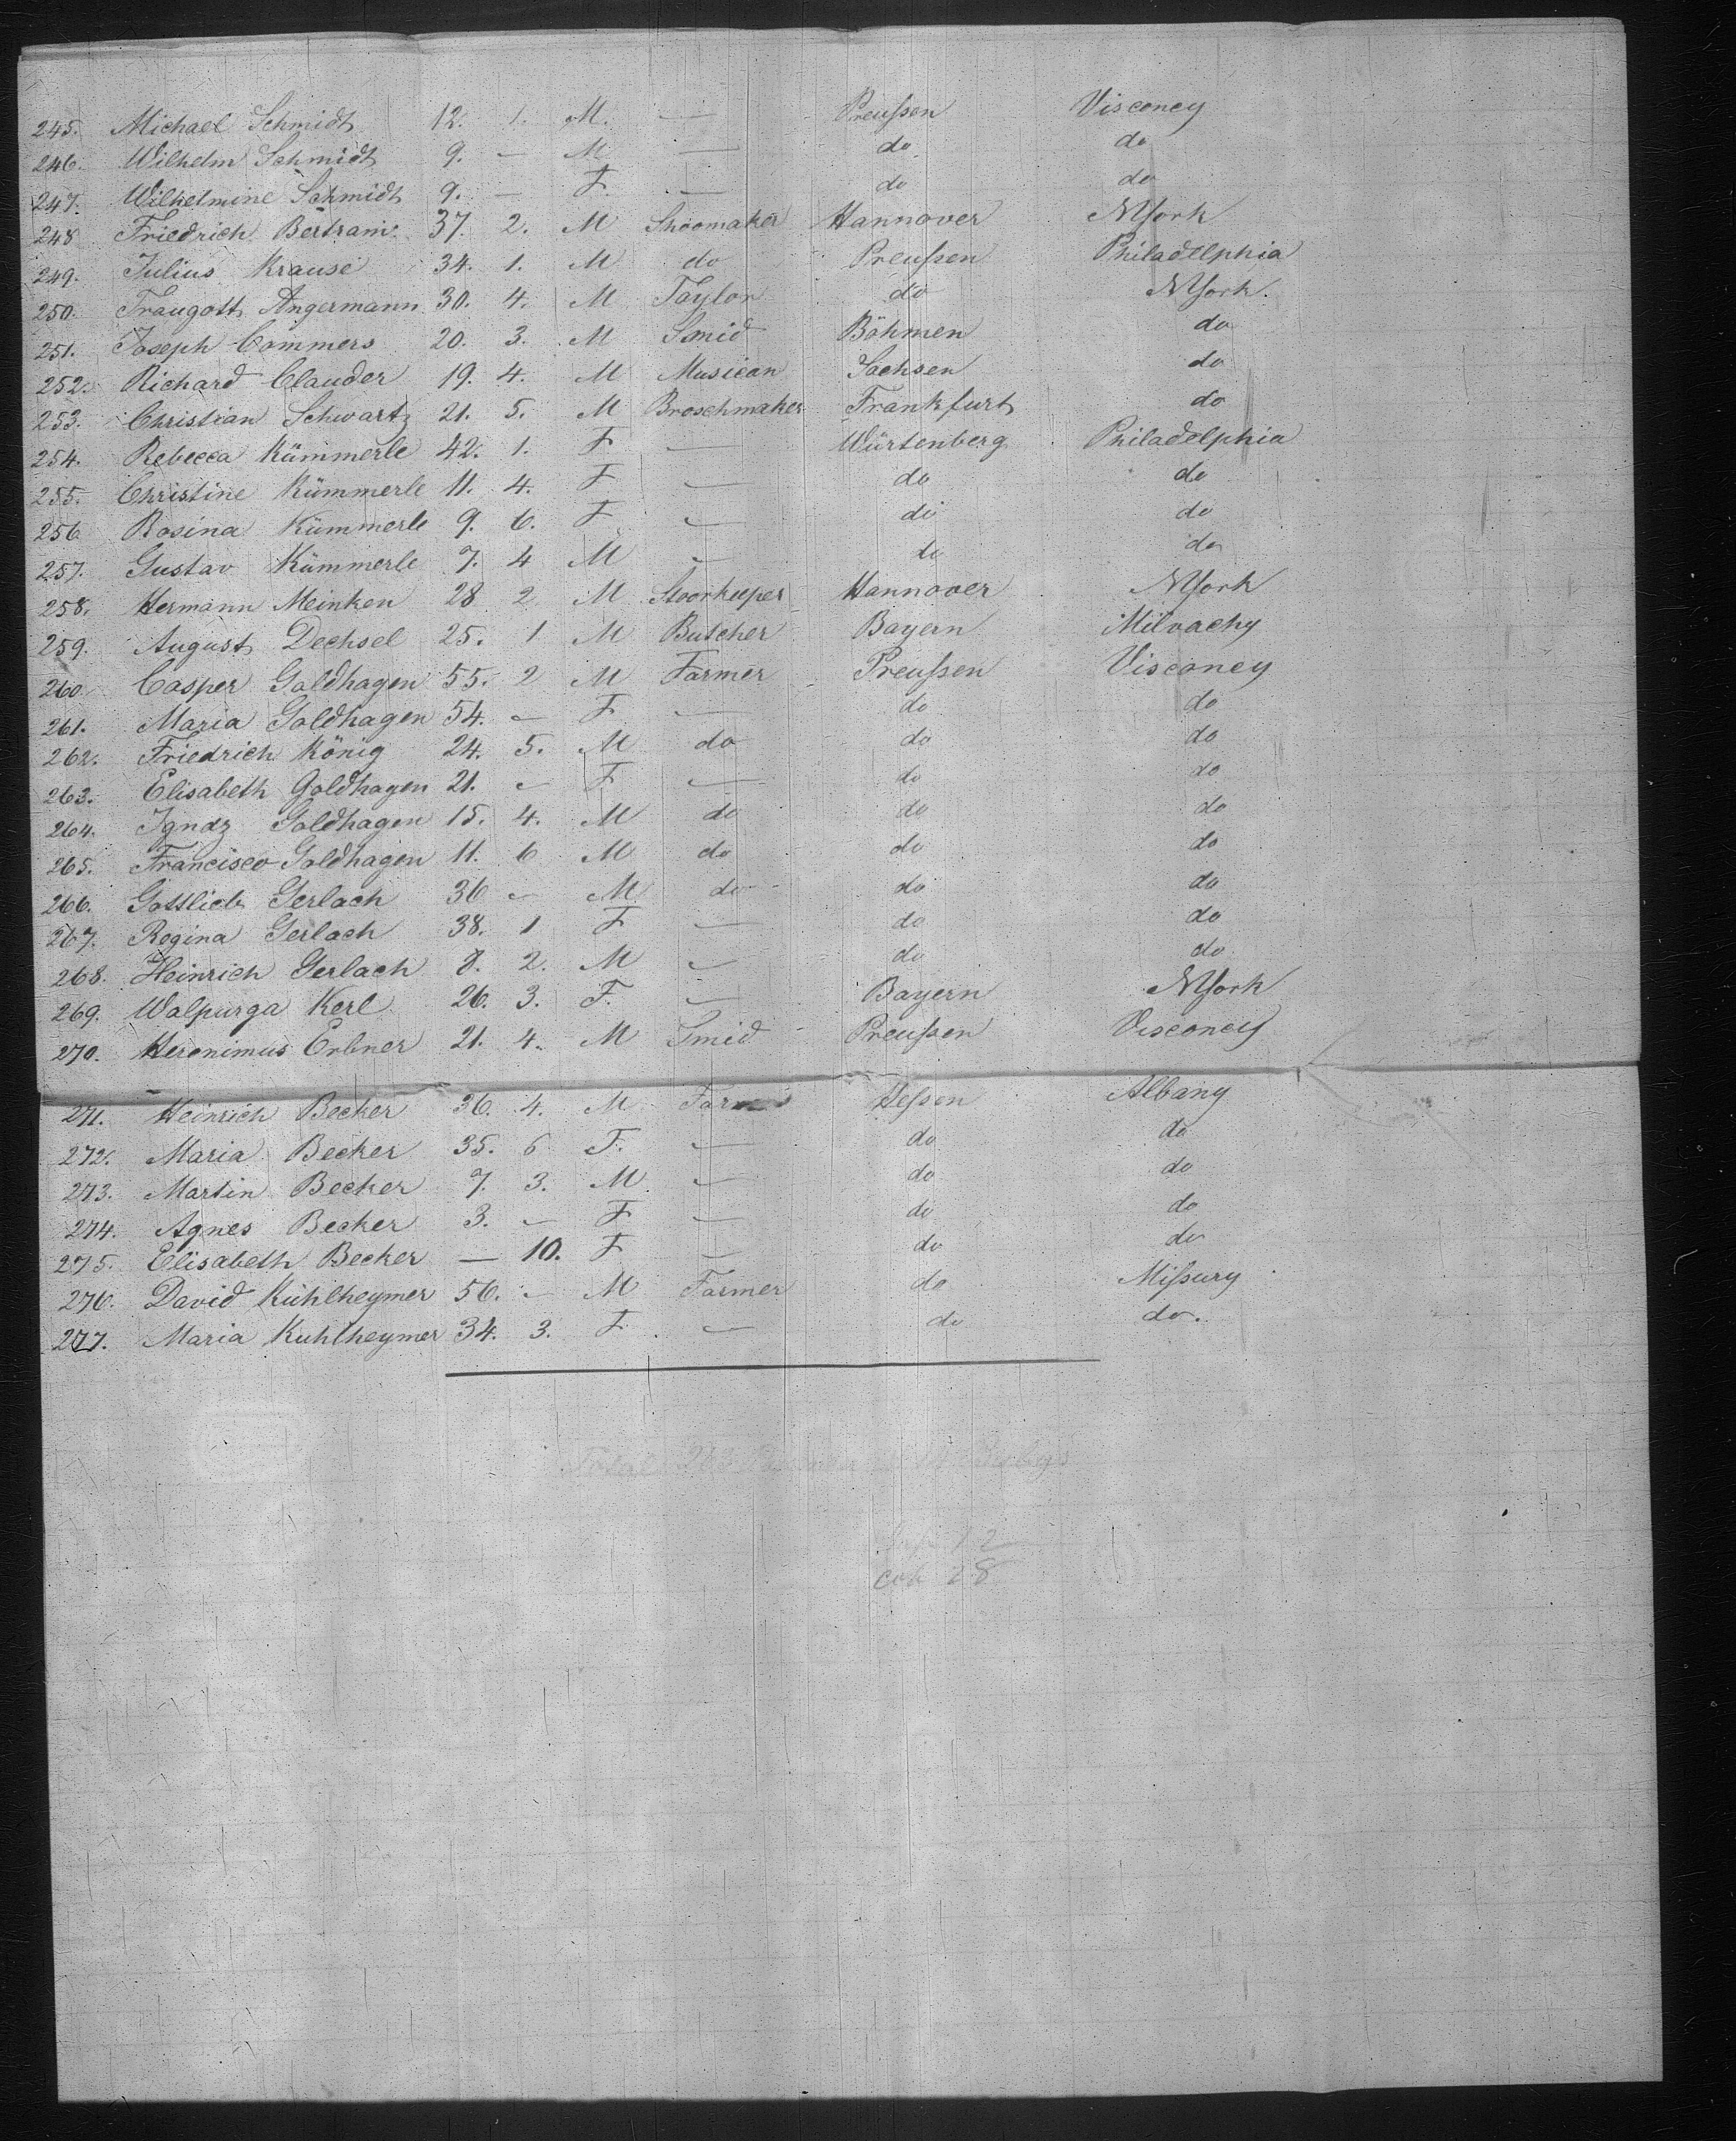 245. Michael Schmidt 12. 1. M. — Preußen Visconcy
246. Wilhelm Schmidt 9. — M — do do
247. Wilhelmine Schmidt 9. — F. — do do
248 Friedrich Bertram 37. 2. M Shoomaker Hannover NYork
249. Julius Krause 34. 1. M do Preußen Philadelphia
250. Traugott Angermann 30. 4. M Taylor do NYork.
251. Joseph Commers 20. 3. M Smid Böhmen do
252. Richard Clauder 19. 4. M Musican Sachsen do
253. Christian Schwartz 21. 5. M Broschmaker Frankfurt do
254. Rebecca Kümmerle 42. 1. F — Würtenberg Philadelphia
255. Christine Kümmerle 11. 4. F — do do
256 Rosina Kümmerle 9. 6. F — do do
257. Gustav Kümmerle 7. 4 M — do do
258. Hermann Meinken 28 2 M Stoorkeeper Hannover NYork
259. August Dechsel 25. 1 M Butcher Bayern Milvachy
260 Casper Goldhagen 55. 2 M Farmer Preußen Visconcy
261. Maria Goldhagen 54. — F — do do
262. Friedrich König 24. 5. M do do do
263. Elisabeth Goldhagen 21. — F — do do
264. Ignaz Goldhagen 15. 4. M do do do
265. Francisco Goldhagen 11. 6 M do do do
266. Gottlieb Gerlach 36 — M do do do
267. Regina Gerlach 38. 1 F — do do
268. Heinrich Gerlach 8. 2. M — do do
269. Walpurga Kerl 26. 3. F. — Bayern NYork
270. Heronimus Erbner 21. 4. M Smid Preußen Visconcy
271. Heinrich Becker 36. 4. M Farmer Heßen Albany
272. Maria Becker 35. 6 F. — do do
273. Martin Becker 7. 3. M — do do
274. Agnes Becker 3. — F — do do
275. Elisabeth Becker — 10. F — do do
276. David Kuhlheymer 56. — M Farmer do Mißury
277. Maria Kuhlheymer 34. 3. F — do do.
Total
12
28